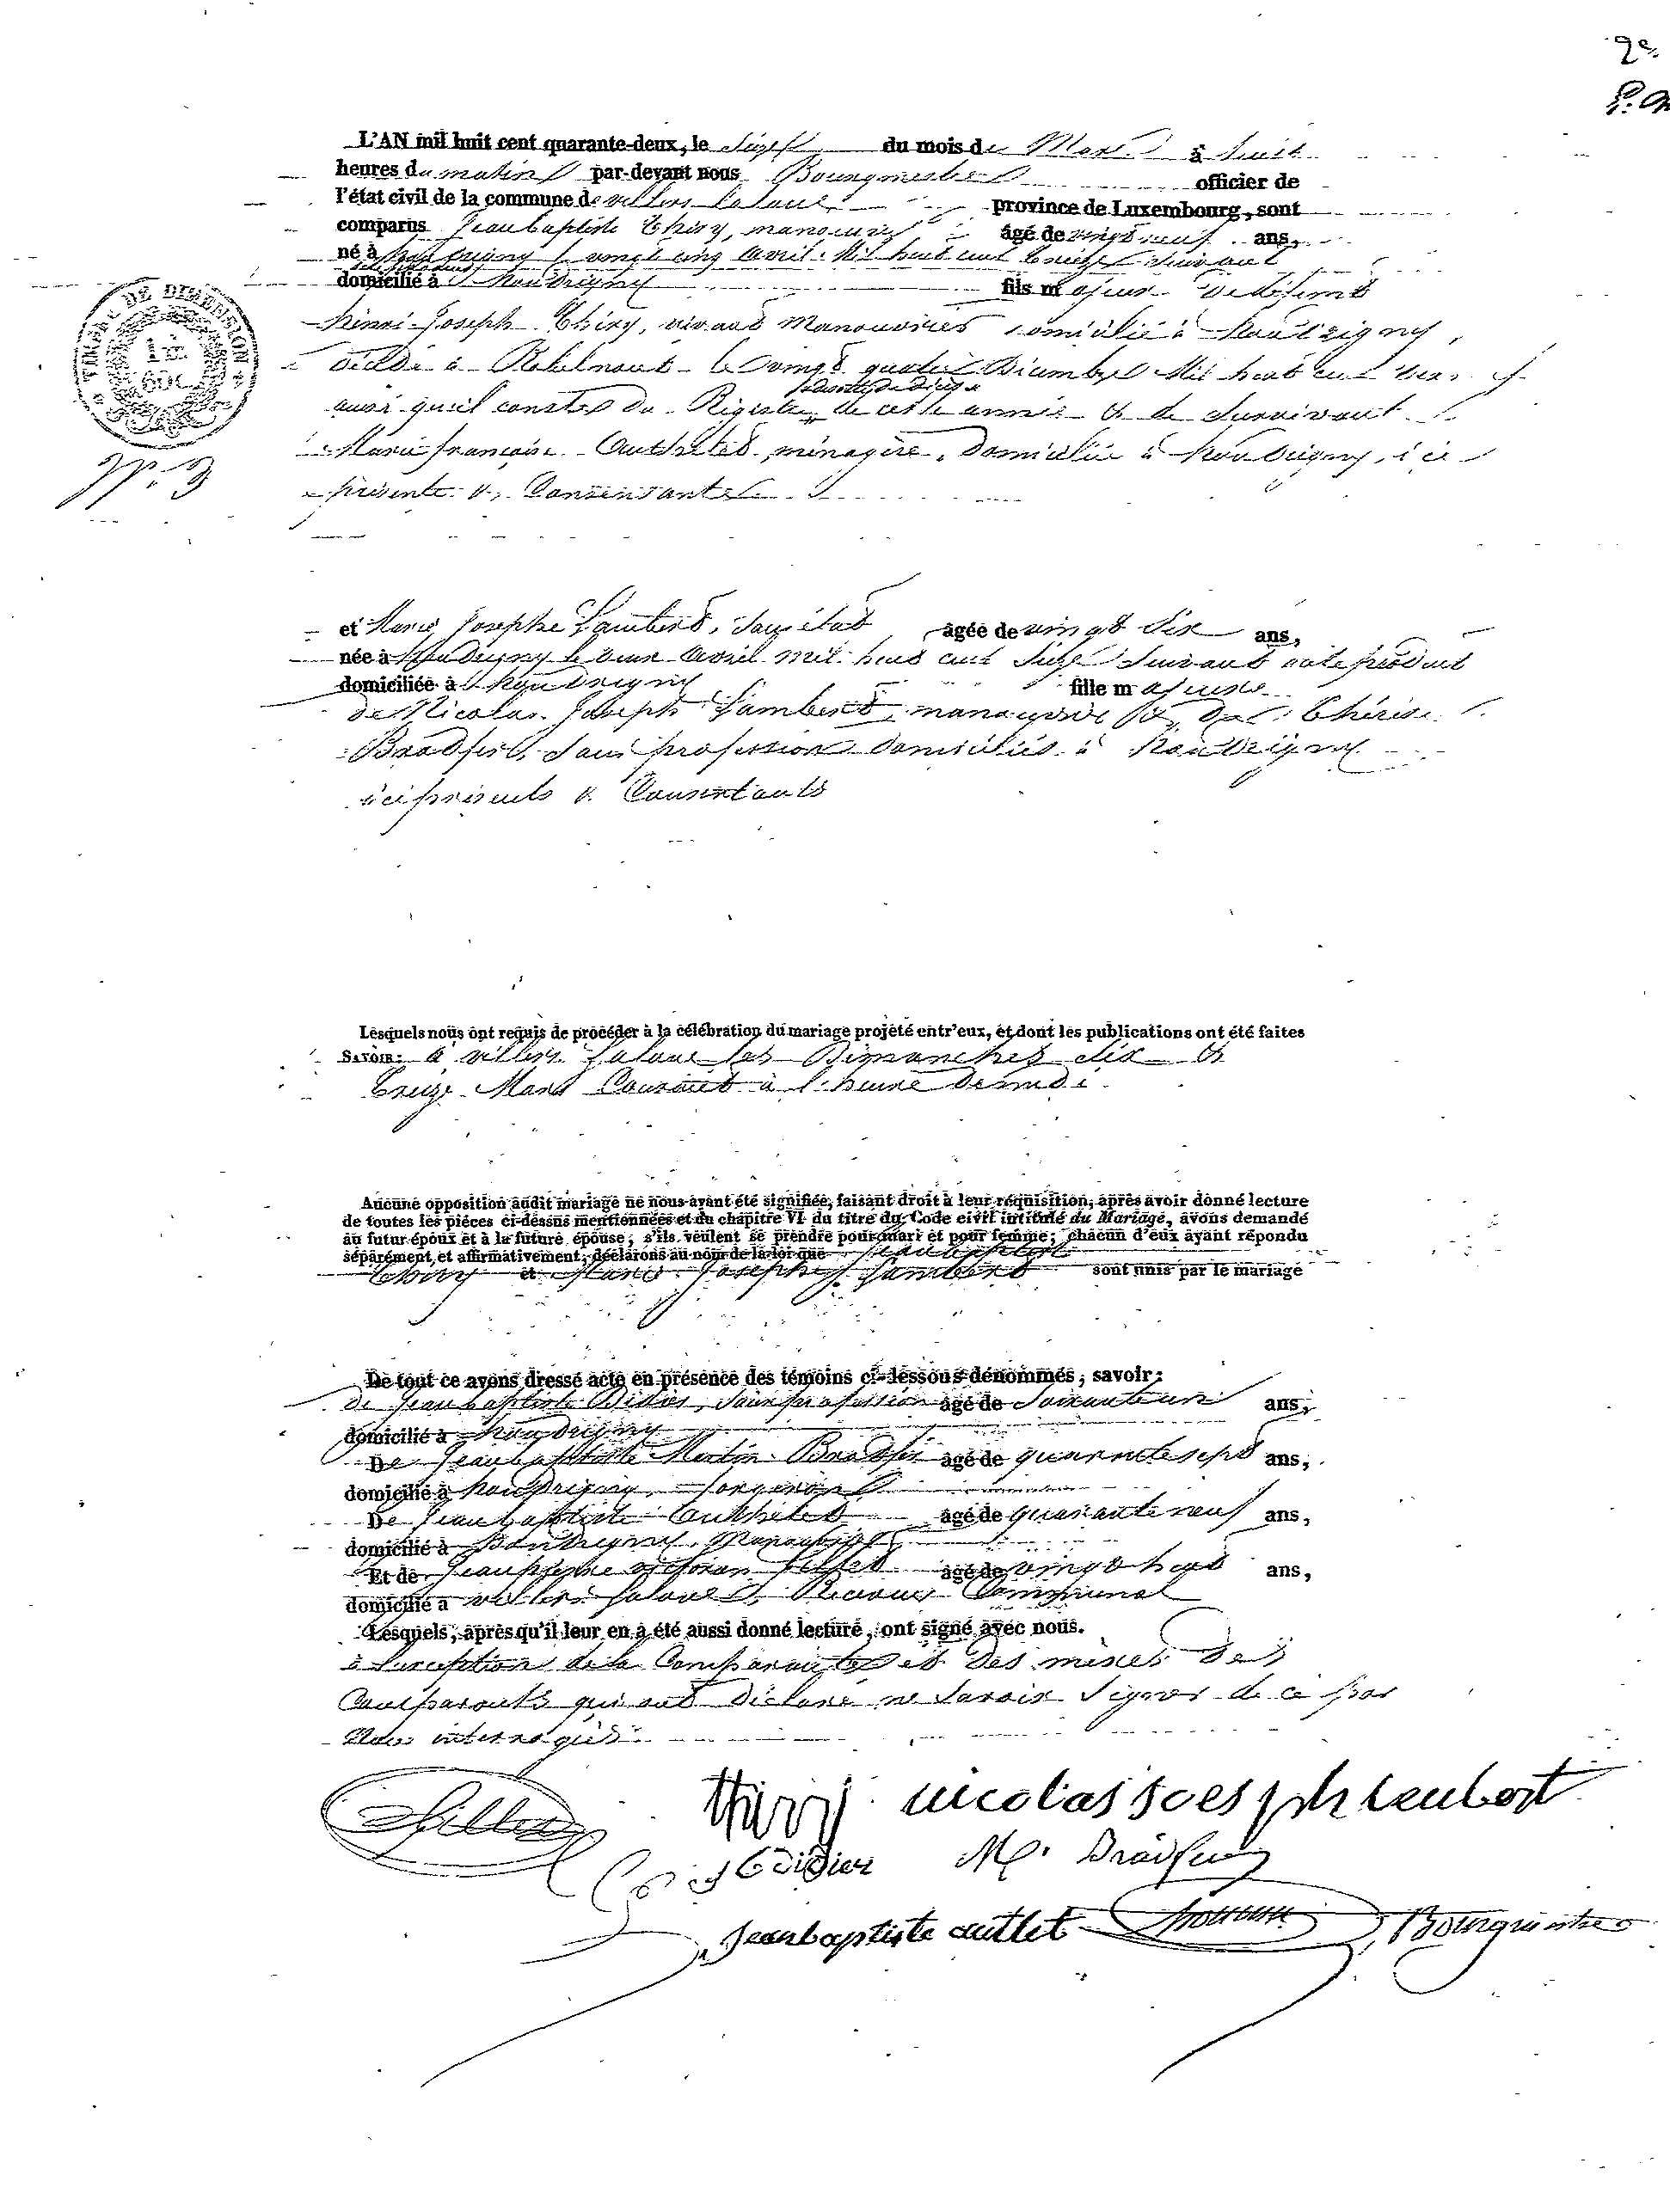 2e
L'AN mil huit cent quarante-deux, le du mois de Mars à huit
heures du matin par-devant nous Bourgmestre officier de
l'état civil de la commune de villers la loue province de Luxembourg, sont
comparus Jeanbaptiste Thiry, manouvrier âgé de vingt neuf ans,
né à houdrigny le vingt cinq avril Mil huit cent treize suivant
domicilié à houdrigny fils majeur de défunt
henri Joseph Thiry, vivant Manouvrier domicilié à houdrigny,
décédé à le vingt quatre Décembre Mil huit cent
ainsi qu'il conste du Registre de cette année & de Survivant
Marie françoise Authelet, ménagère, domiciliée à houdrigny, ici
présente & Consentante
N°. 3
TIMBRE DE DIMENSION
et Marie Josephe Lambert, sans état âgée de vingt six ans,
née à houdrigny le avril mil huit cent seize suivant acte produit
domiciliée à houdrigny fille majeure
de Nicolas Joseph Lambert, manouvrier & de Thérèse
Bradfer, sans profession domiciliés à houdrigny
ici présents & Consentants
Lesquels nous ont requis de procéder à la célébration du mariage projeté entr'eux, et dont les publications ont été faites
SAVOIR: à villers la loue les Dimanches six &
treize Mars Courant à l'heure de midi
Aucune opposition audit mariage ne nous ayant été signifiée, faisant droit à leur réquisition, après avoir donné lecture
de toutes les pièces ci-dessus mentionnées et du chapitre VI du titre du Code civil intitulé du Mariage, avons demandé
au futur époux et à la future épouse, s'ils veulent se prendre pour mari et pour femme; chacun d'eux ayant répondu
séparément, et affirmativement, déclarons au nom de la loi que Jeanbaptiste
Thiry et Marie Josephe Lambert sont unis par le mariage
De tout ce avons dressé acte en présence des témoins ci-dessous dénommés, savoir:
de Jeanbaptiste Didier, sans profession âgé de soixante un ans,
domicilié à houdrigny
De Jeanbaptiste Martin Bradfer âgé de quarante sept ans,
domicilié à houdrigny, forgeron
De Jeanbaptiste Authelet âgé de quarante neuf ans,
domicilié à houdrigny, Manouvrier
Et de Jeanpierre âgé de vingt huit ans,
domicilié à villers la loue, Receveur Communal
Lesquels, après qu'il leur en a été aussi donné lecture, ont signé avec nous.
à l'exception de la Comparante et des mères des
Comparants qui ont déclaré ne savoir signer de ce par
Nous interrogés
thiry nicolas joesph lembert
didier M. Bradfer
Jeanbaptiste autlet Bourgmestre